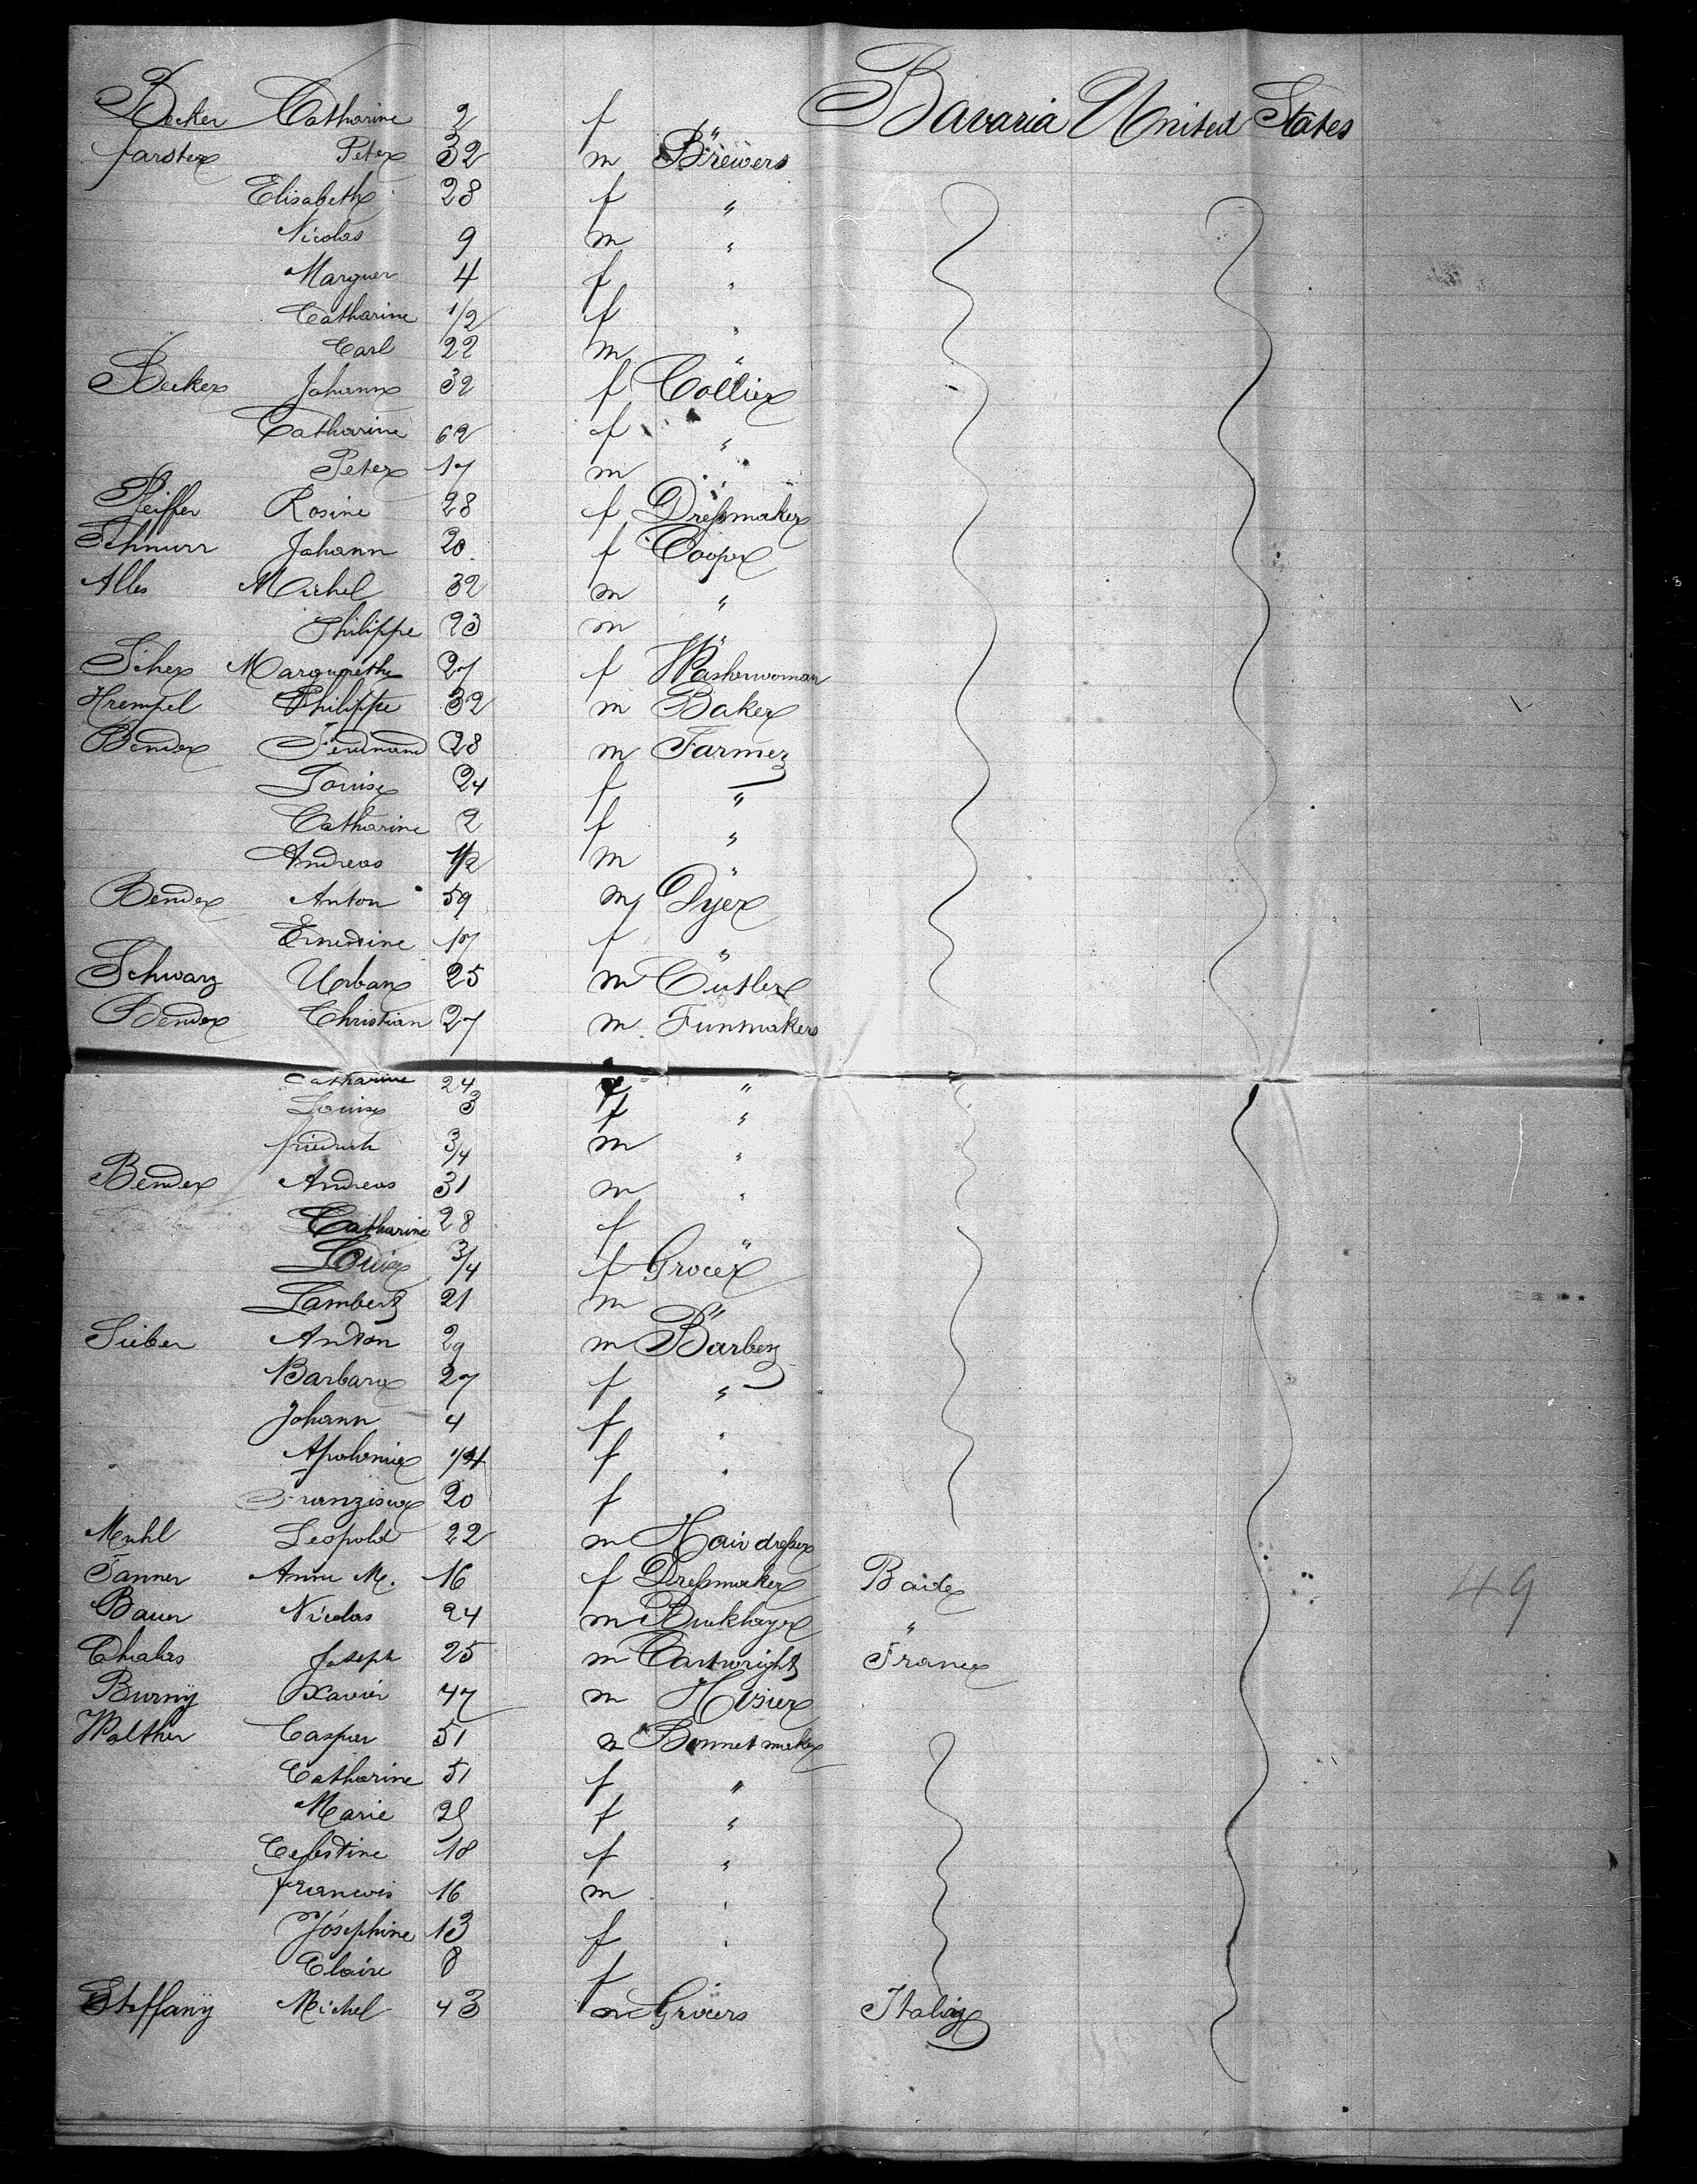 Becker Catharine 2 f " Bavaria United States
farster Peter 32 m Brewers
Elisabeth 28 f "
Nicolas 9 m "
Marguer 4 f "
Catharine 1/2 f "
Carl 22 m "
Becker Johann 32 f Collier
Catharine 62 f "
Peter 17 m "
Pfeiffer Rosine 28 f Dressmaker
Schnurr Johann 20 f Cooper
Alles Michel 32 m "
Philippe 23 m "
Scher Marguerethe 27 f Washerwoman
Hrempel Philippe 32 m Baker
Bender Ferdinand 28 m Farmer
Louise 24 f "
Catharine 2 f "
Andreas 1/2 m "
Bender Anton 59 m Dyer
Ernestine 17 f "
Schwarz Urban 25 m Cutler
Bender Christian 27 m Funmakers
Catharine 24 f "
Louise 3 f "
friedrich 3/4 m "
Bender Andreas 31 m "
Catharine 28 f "
Louise 3/4 f Grocer
Lambert 21 m "
Sieber Anton 29 m Barber
Barbara 27 f "
Johann 4 f "
Apolonia f "
Franzisca 20 f
Muhl Leopold 22 m Hairdresser
Tanner Anna M. 16 f Dressmaker Bade 49
Bauer Nicolas 24 m "
Joseph 25 m Cartwright France
Burny Xavier 47 m Hosier
Walther Casper 51 m Bonnet maker
Catharine 51 f "
Marie f "
Celestine 18 f "
francois 16 m "
Josephine 13 f "
Claire 8 f
Steffany Michel 43 m Grocers Italy